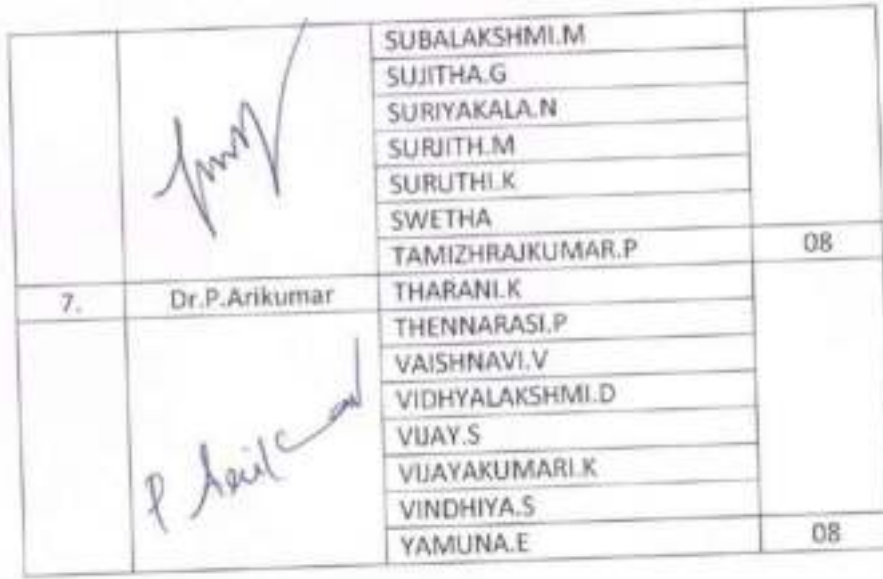 SUBALAKSHMI.M
SUJITHA.G
SURIYAKALA.N
SURJITH.M
SURUTHI.K
SWETHA
TAMIZHRAJKUMAR.P 08
7. Dr.P.Arikumar THARANI.K
THENNARASI.P
VAISHNAVI.V
VIDHYALAKSHMI.D
VIJAY.S
VIJAYAKUMARI.K
VINDHIYA.S
YAMUNA.E 08